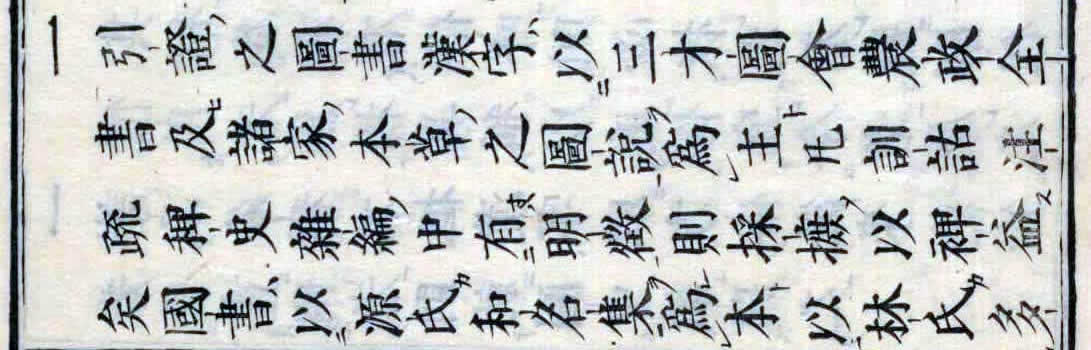 一引證之圖書漢字以三才圖會農政全
書及諸家本草之圖説爲主凡訓詁注
疏稗史雜編中有明徴則採摭以裨益
矣國書以源氏和名集爲本以林氏多